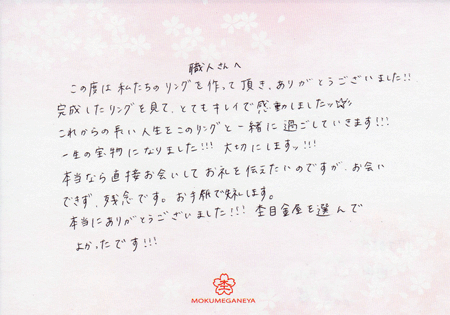 職人さんへ
この度は私たちのリングを作って頂き、ありがとうございました!!
完成したリングを見て、とてもキレイで感動しましたッ☆彡
これからの長い人生をこのリングと一緒に過ごしていきます!!!
一生の宝物になりました!!! 大切にしますッ!!!
本当なら直接お会いしてお礼を伝えたいのですが、お会い
できず、残念です。お手紙で失礼します。
本当にありがとうございました!!! 杢目金屋を選んで
よかったです!!!
杢
MOKUMEGANEYA